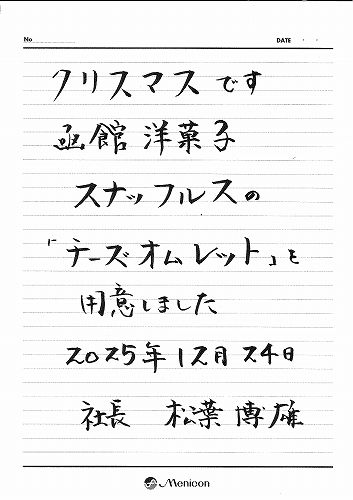 No
DATE ・ ・
クリスマスです
函館洋菓子
スナッフルスの
「チーズオムレット」を
用意しました
2025年12月24日
社長 松葉博雄
Menicon